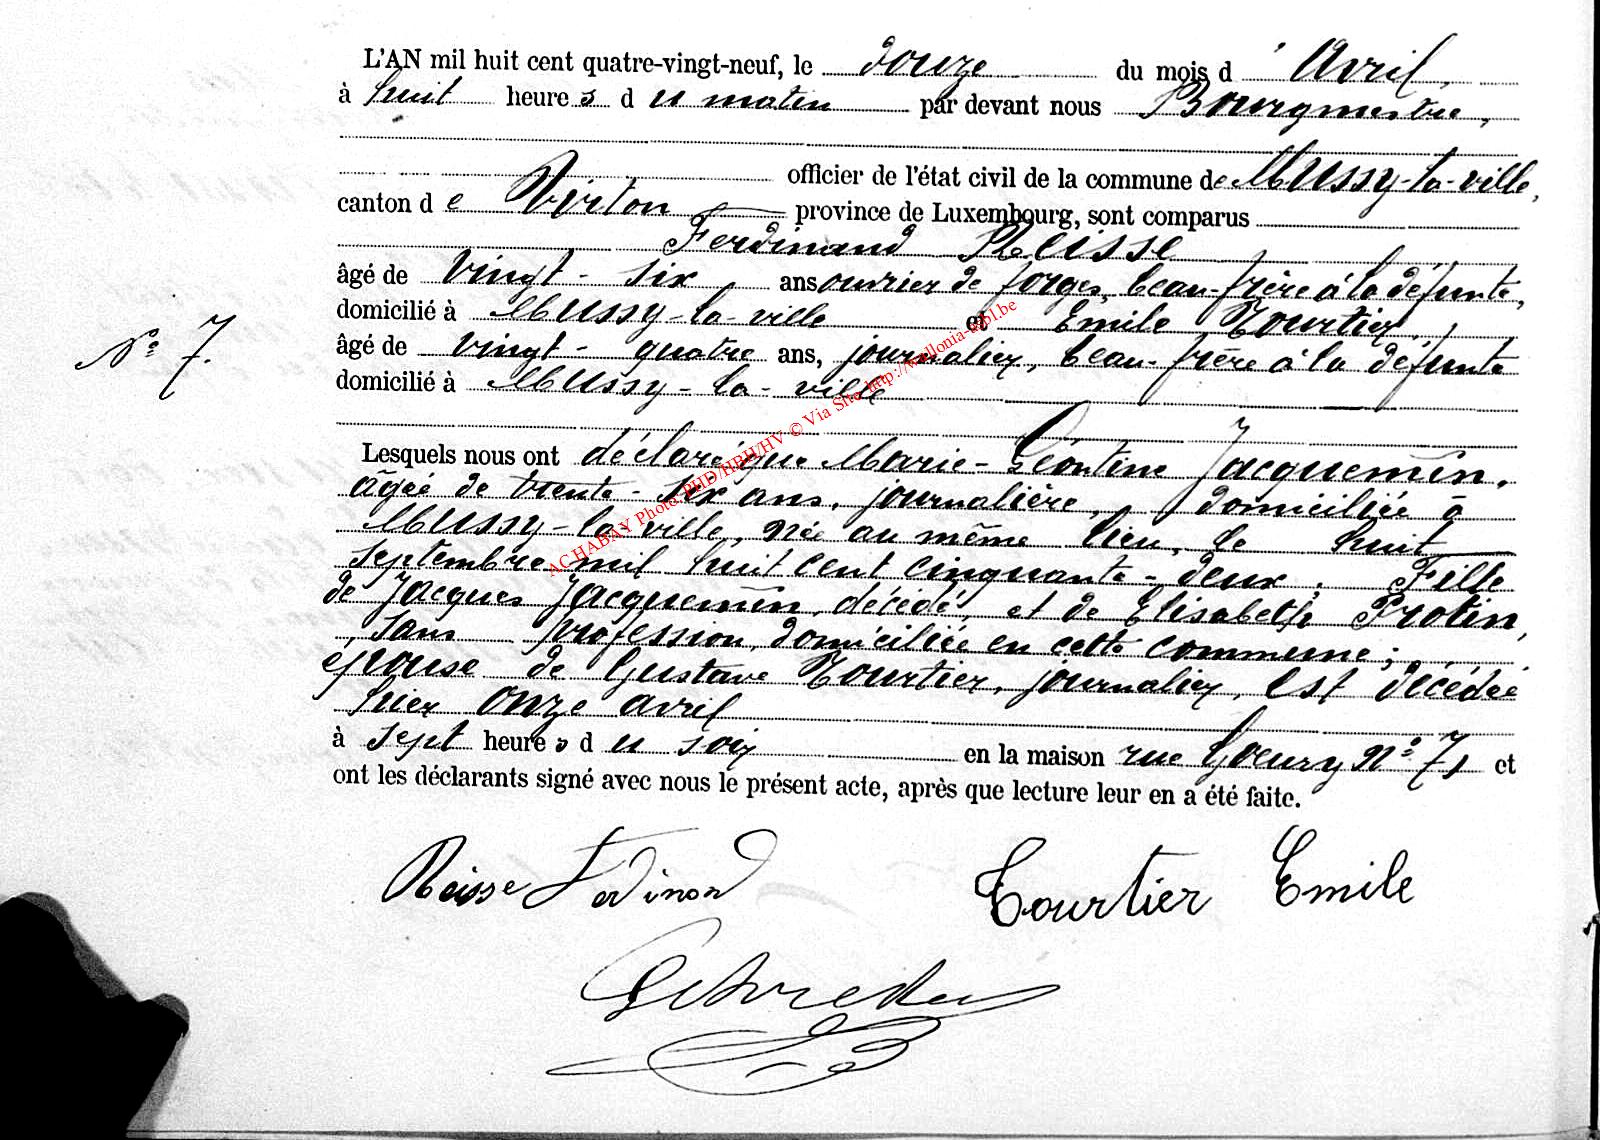 L'AN mil huit cent quatre-vingt-neuf, le douze du mois d'Avril,
à huit heures du matin par devant nous Bourgmestre,
officier de l'état civil de la commune de Mussy-la-ville,
canton de Virton province de Luxembourg, sont comparus
Ferdinand Reisse
âgé de vingt-six ans ouvrier de forges, beau-frère à la défunte,
domicilié à Mussy-la-ville et Emile Tourtier,
âgé de vingt-quatre ans, journalier, beau-frère à la défunte
N° 7.
domicilié à Mussy-la-ville
ACHABAY Photo PHD/HBH/HV © Via Site http://wallonia-asbl.be
Lesquels nous ont déclaré que Marie-Léontine Jacquemin,
âgée de trente-six ans, journalière, domiciliée à
Mussy-la-ville, née au même lieu, le huit
septembre mil huit cent cinquante-deux, Fille
de Jacques Jacquemin, décédé, et de Elisabeth Protin,
sans profession, domiciliée en cette commune;
épouse de Gustave Tourtier, journalier, est décédée
hier onze avril
à sept heures du soir en la maison rue Gœury N° 71 et
ont les déclarants signé avec nous le présent acte, après que lecture leur en a été faite.
Reisse Ferdinand Tourtier Emile